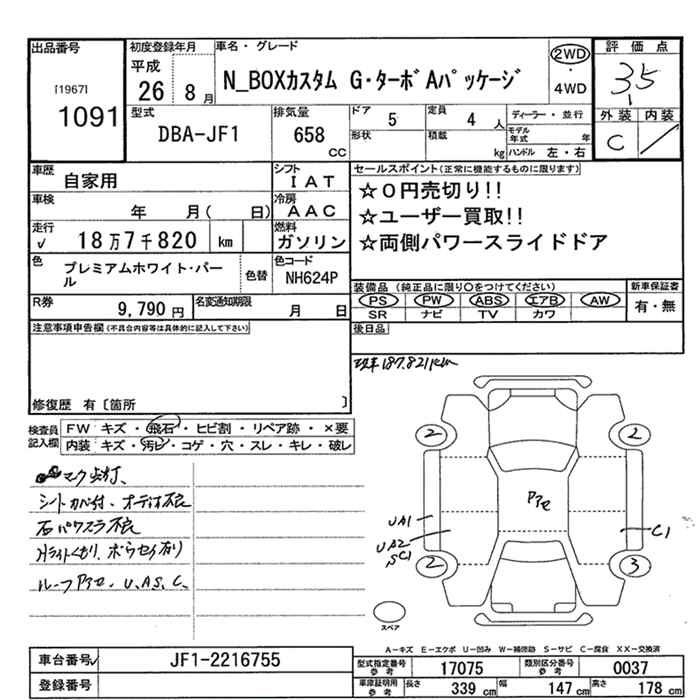 出品番号
[1967]
1091
初度登録年月
平成
26 8月
車名・グレード
N_BOXカスタム G・ターボAパッケージ
2WD
・
4WD
評価点
3.5
外装 内装
C
型式
DBA-JF1
排気量
658
CC
ドア
5
定員
4 人
形状
積載
kg
ディーラー・並行
モデル年式 年
ハンドル 左・右
車歴
自家用
シフト
IAT
車検
年 月( 日)
冷房
AAC
走行
√ 18万7千820 km
燃料
ガソリン
色
プレミアムホワイト・パール
色替
色コード
NH624P
R券
9,790円
名変通知期限
月 日
セールスポイント(正常に機能するものに限ります)
☆0円売切り!!
☆ユーザー買取!!
☆両側パワースライドドア
装備品(純正品に限り○をつけてください)
PS PW ABS エアB AW
SR ナビ TV カワ
新車保証書
有・無
後日品
注意事項申告欄(不具合内容等は具体的に記入して下さい)
修復歴 有〔箇所 〕
187.821km
検査員記入欄
FW キズ・飛石・ヒビ割・リペア跡・×要
内装 キズ・汚レ・コゲ・穴・スレ・キレ・破レ
マーク点灯、
シートカバー付、オーディオ不良
右パワスラ不良
Hライトくもり、ボウセイ有り
ルーフアセ、U、A、S、C、
2
2
アセ
UA1
UA2
SC1
C1
2
3
スペア
A-キズ E-エクボ U-凹み W-補修跡 S-サビ C-腐食 XX-交換済
車台番号√
JF1-2216755
登録番号
型式指定番号
参考
17075
類別区分番号
参考
0037
車庫証明用
参考
長さ 339 cm
幅 147 cm
高さ 178 cm